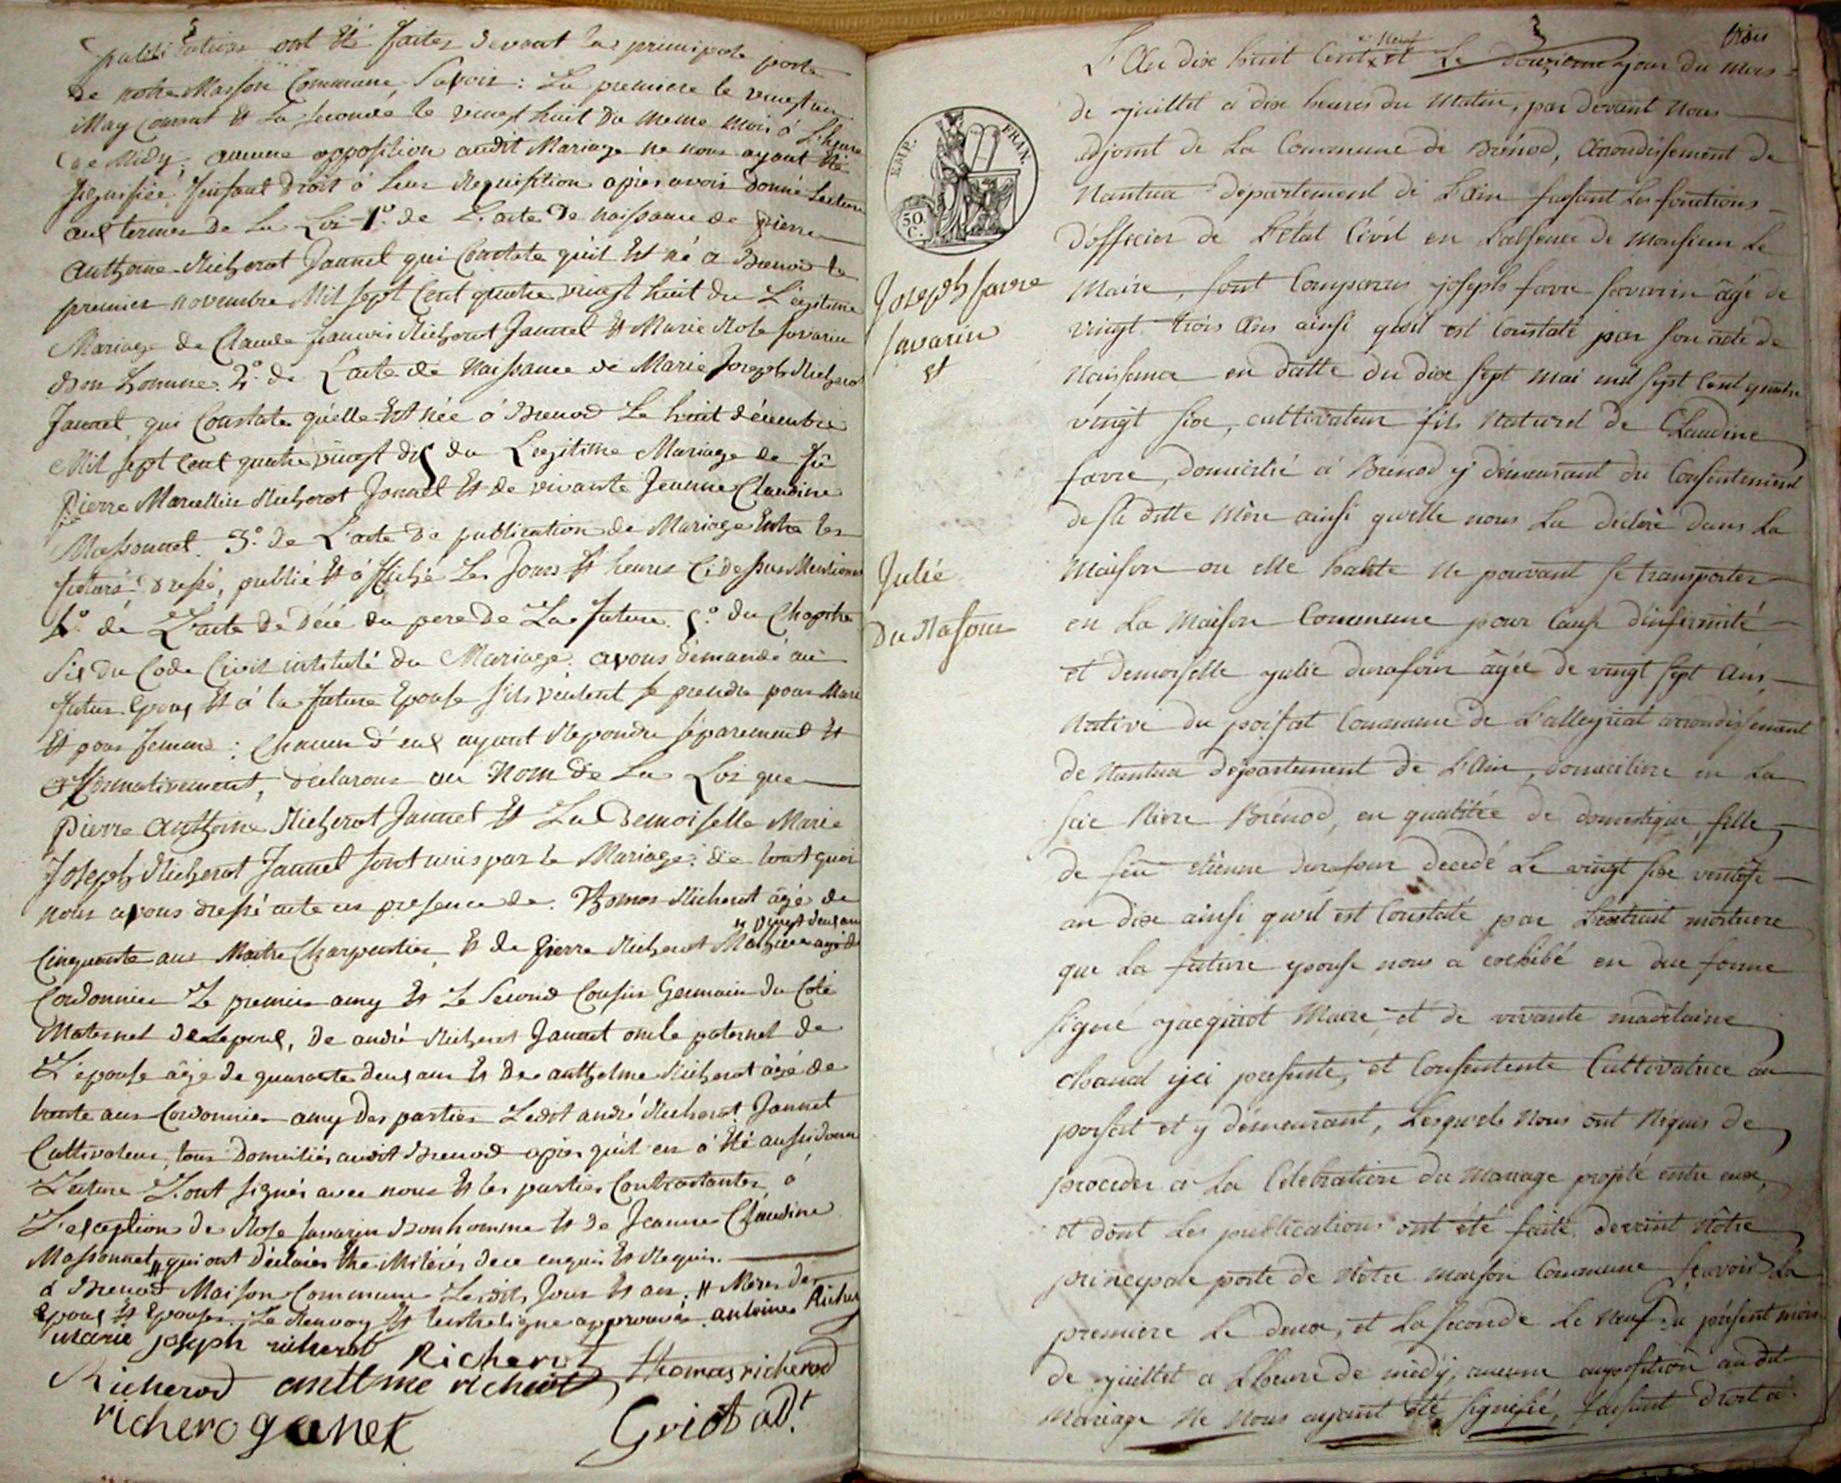 publications ont été faites devant la principale porte
de notre Maison Commune, Savoir : La premiere le vingt un
May Courant et La seconde le vingt huit du meme mois à L'heure
de Midy, aucune opposition audit Mariage ne nous ayant été
signifiée, faisant droit à leur Requisition après avoir donné Lecture
aux termes de La Loi 1°. de L'acte de naissance de pierre
anthoine Richerot Jannet qui Constate qu'il est né à Brenod le
premier novembre Mil sept Cent quatre vingt huit du Legitime
Mariage de Claude françois Richerot Jannet et Marie Rose Savarin
Bon homme. 2°. de L'acte de Naissance de Marie Joseph Richerot
Jannet, qui Constate qu'elle est née à Brenod Le huit décembre
Mil sept Cent quatre vingt dix du Legitime Mariage de fû
Pierre Marcellin Richerot Jannet et de vivante Jeanne Claudine
Massonnet. 3°. de L'acte de publication de Mariage Entre les
futurs dressé, publié et affiché Les Jours et heures Cidessus Mentionnés
4°. de L'acte de décé du pere de La future. 5°. du Chapitre
Six du Code Civil intitulé du Mariage. avons demandé au
futur Epoux et à la future Epouse s'ils veulent se prendre pour Mari
et pour femme : Chacun d'eux ayant Repondu séparement et
affirmativement, déclarons au nom de La Loi que
Pierre anthoine Richerot Jannet et La Demoiselle Marie
Joseph Richerot Jannet sont unis par le Mariage. de tout quoi
nous avons dressé acte en presence de Thomas Richerot âgé de
" vingt deux ans
Cinquante ans Maitre Charpentier, et de pierre Richerot Mathieu agé de
Cordonnier Le premier amy et Le Second Cousin Germain du Coté
Maternel de Lepoux, de andré Richerot Jannet oncle paternel de
L'épouse âgé de quarante deux ans et de anthelme Richerot âgé de
trente ans Cordonnier amy des parties Ledit andré Richerot Jannet
Cultivateur, tous Domiciliés audit Brenod après qu'il en a été aussi donné
Lecture L'ont signés avec nous et les parties Contractantes à
L'exception de Rose Savarin Bonhomme et de Jeanne Claudine
Massonnet, " qui ont déclarés être illitérés de ce enquis et Requis.
à Brenod Maison Commune Lesdits Jour et an. " Meres des
Epoux et Epouse. Le Renvoy et lentreligne approuvés. antoine Richer
marie joseph richerot Richerot thomas richerod
Richerod antlme richerot
richeroganet Griot ad.t
3
trois
neuf
L'An dix huit Cent et Le douzieme jour du mois
de juillet a dix heures du Matin, par devant Nous
adjoint de La Commune de Brénod, Arrondissement de
Nantua departement de L'ain faisant Les fonctions
d'officier de L'état Civil en L'absence de Monsieur Le
Maire, sont Comparus joseph favre savarin âgé de
vingt trois Ans ainsi qu'il est Constaté par son acte de
Naissance en datte du dix sept mai mil sept Cent quatre
vingt six, cultivateur fils Naturel de Claudine
favre, domicilié à Brénod y démeurant du Consentement
de sa ditte Mère ainsi quelle nous La déclaré dans La
Maison ou elle habite Ne pouvant se transporter
en La Maison Commune pour Cause d'infirmité
et demoiselle julie durafour âgée de vingt sept Ans,
Native du poisat Commune de Lalleyriat arrondissement
de Nantua departement de L'Ain, domiciliée en La
scie Riere Brénod, en qualitée de domestique, fille
de feu etienne durafour decedé Le vingt six ventose
an dix ainsi qu'il est Constaté par L'extrait mortuere
que La future epouse nous a exhibé en due forme
signé jacquinot Maire, et de vivante madelaine
chanal ici presente, et Consentente Cultivatrice au
poisat et y démeurant, Lesquels Nous ont Réquis de
proceder a La Celebration du Mariage projeté entre eux,
et dont Les publications ont été faite devant Nôtre
principale porte de Nôtre maison Commune sçavoir La
premiere Le deux, et La seconde Le Neuf du présent mois
de juillet a L'heure de midy, aucune opposition au dit
Mariage Ne Nous ayant été signifié, faisant droit à
EMP. FRAN.
50 C.
Joseph favre
savarin
et
Julie
Du Rafour